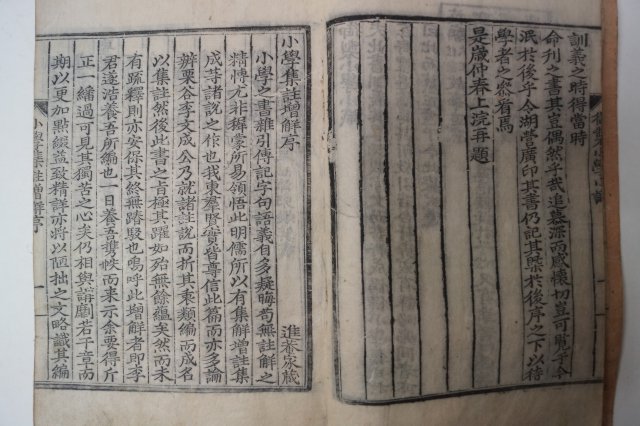 訓義之時得當時
命刊之書其豈偶然乎哉追慕深而感懷切豈可獨于今
泯於後乎今湖營廣印其書仍記其槩於後序之下以待
學者之察爲焉
是歲仲春上浣再題
小學集註增解序
進菴家藏
小學之書雜引傳記字句語義自多疑晦苟無註解之
精博尤非穉蒙所易領悟此明儒所以有集解增註集
成等諸說之作也我東羣賢實皆尊信此篇而亦多論
辨栗谷李文成公乃就諸註說而折其衷類編而成名
以集註然後此書之肯極其躍如殆無餘蘊矣然而未
有疏釋則亦安保其終無踳駁也嗚呼此增解者即李
君遂浩養吾所編也一日養吾携帙而來示余要得斤
正一繙過可見其獨苦之心矣仍相與講劘若干章而
期以更加點綴益致精詳亦將以陋拙之文略識其編
小學集註增解序